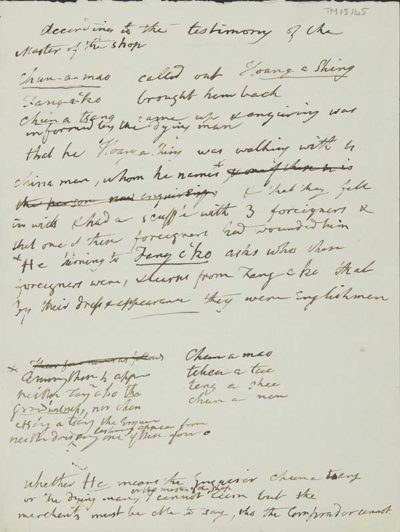 TM15/45
According to the testimony of the
Master of the shop
Chun-a-mao called out Hoang a Shing
Tang-a-ko brought him back
Chun a tsang came up & enquiring was
informed by the dying man
that he Hoang a hing was walking with a
china man, whom he names
the person now enquiring & that they fell
in with & had a scuffle with 3 foreigners &
that one of these foreigners had wounded him
* He turning to Tang a ko asks who these
foreigners were, & learns from Tang a ko that
by their dress & appearance they were Englishmen
Chun a mao
* Among them is appn
neither Tang a ko the
nor Chun
a tsang the Enquirer
neither does any one of these four
teng a shee
Chun a
whether He means the Enquirer Chun a tsang
or the master of the shop
or the dying man, I cannot learn but the
merchants must be able to say, tho the Comprador cannot